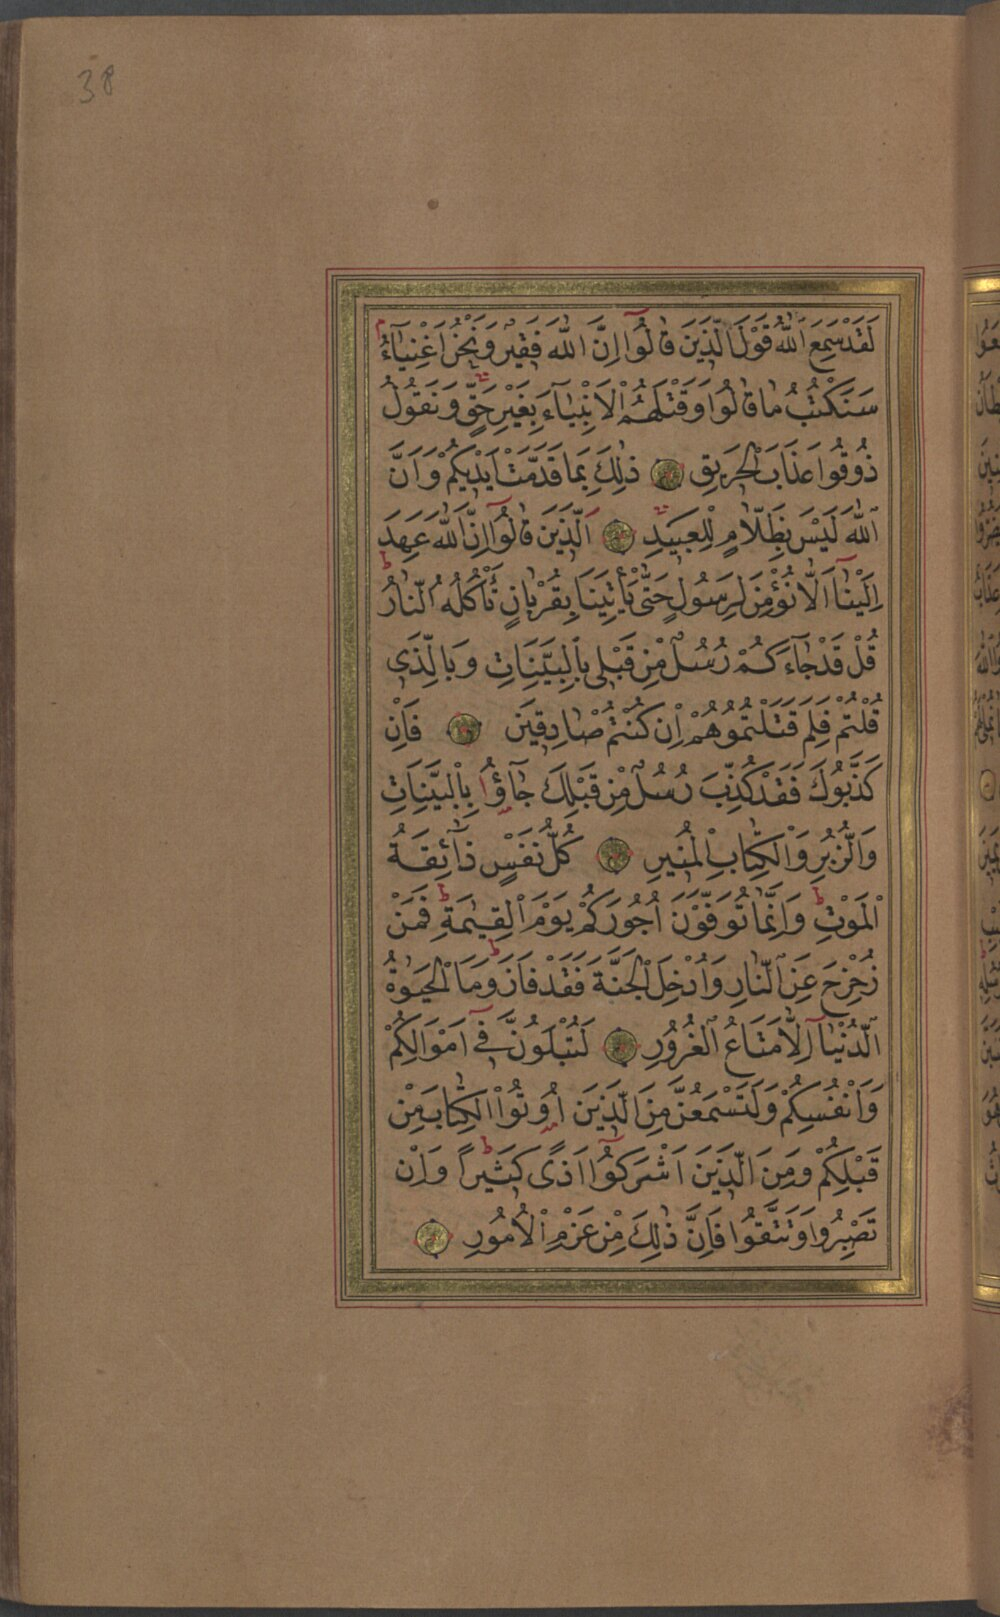 38
لَقَدْ سَمِعَ اللّٰهُ قَوْلَ الَّذِينَ قَالُوٓا اِنَّ اللّٰهَ فَقِيرٌ وَنَحْنُ اَغْنِيَآءُ
سَنَكْتُبُ مَا قَالُوا وَقَتْلَهُمُ الْاَنْبِيَآءَ بِغَيْرِ حَقٍّ وَنَقُولُ
ذُوقُوا عَذَابَ الْحَرِيقِ ذٰلِكَ بِمَا قَدَّمَتْ اَيْدِيكُمْ وَاَنَّ
اللّٰهَ لَيْسَ بِظَلَّامٍ لِلْعَبِيدِ اَلَّذِينَ قَالُوٓا اِنَّ اللّٰهَ عَهِدَ
اِلَيْنَآ اَلَّا نُؤْمِنَ لِرَسُولٍ حَتّٰى يَأْتِيَنَا بِقُرْبَانٍ تَأْكُلُهُ النَّارُ
قُلْ قَدْ جَآءَكُمْ رُسُلٌ مِنْ قَبْلِى بِالْبَيِّنَاتِ وَبِالَّذِى
قُلْتُمْ فَلِمَ قَتَلْتُمُوهُمْ اِنْ كُنْتُمْ صَادِقِينَ فَاِنْ
كَذَّبُوكَ فَقَدْ كُذِّبَ رُسُلٌ مِنْ قَبْلِكَ جَآؤُ بِالْبَيِّنَاتِ
وَالزُّبُرِ وَالْكِتَابِ الْمُنِيرِ كُلُّ نَفْسٍ ذَآئِقَةُ
الْمَوْتِ وَاِنَّمَا تُوَفَّوْنَ اُجُورَكُمْ يَوْمَ الْقِيٰمَةِ فَمَنْ
زُحْزِحَ عَنِ النَّارِ وَاُدْخِلَ الْجَنَّةَ فَقَدْ فَازَ وَمَا الْحَيٰوةُ
الدُّنْيَآ اِلَّا مَتَاعُ الْغُرُورِ لَتُبْلَوُنَّ فِىٓ اَمْوَالِكُمْ
وَاَنْفُسِكُمْ وَلَتَسْمَعُنَّ مِنَ الَّذِينَ اُوتُوا الْكِتَابَ مِنْ
قَبْلِكُمْ وَمِنَ الَّذِينَ اَشْرَكُوٓا اَذًى كَثِيراً وَاِنْ
تَصْبِرُوا وَتَتَّقُوا فَاِنَّ ذٰلِكَ مِنْ عَزْمِ الْاُمُورِ